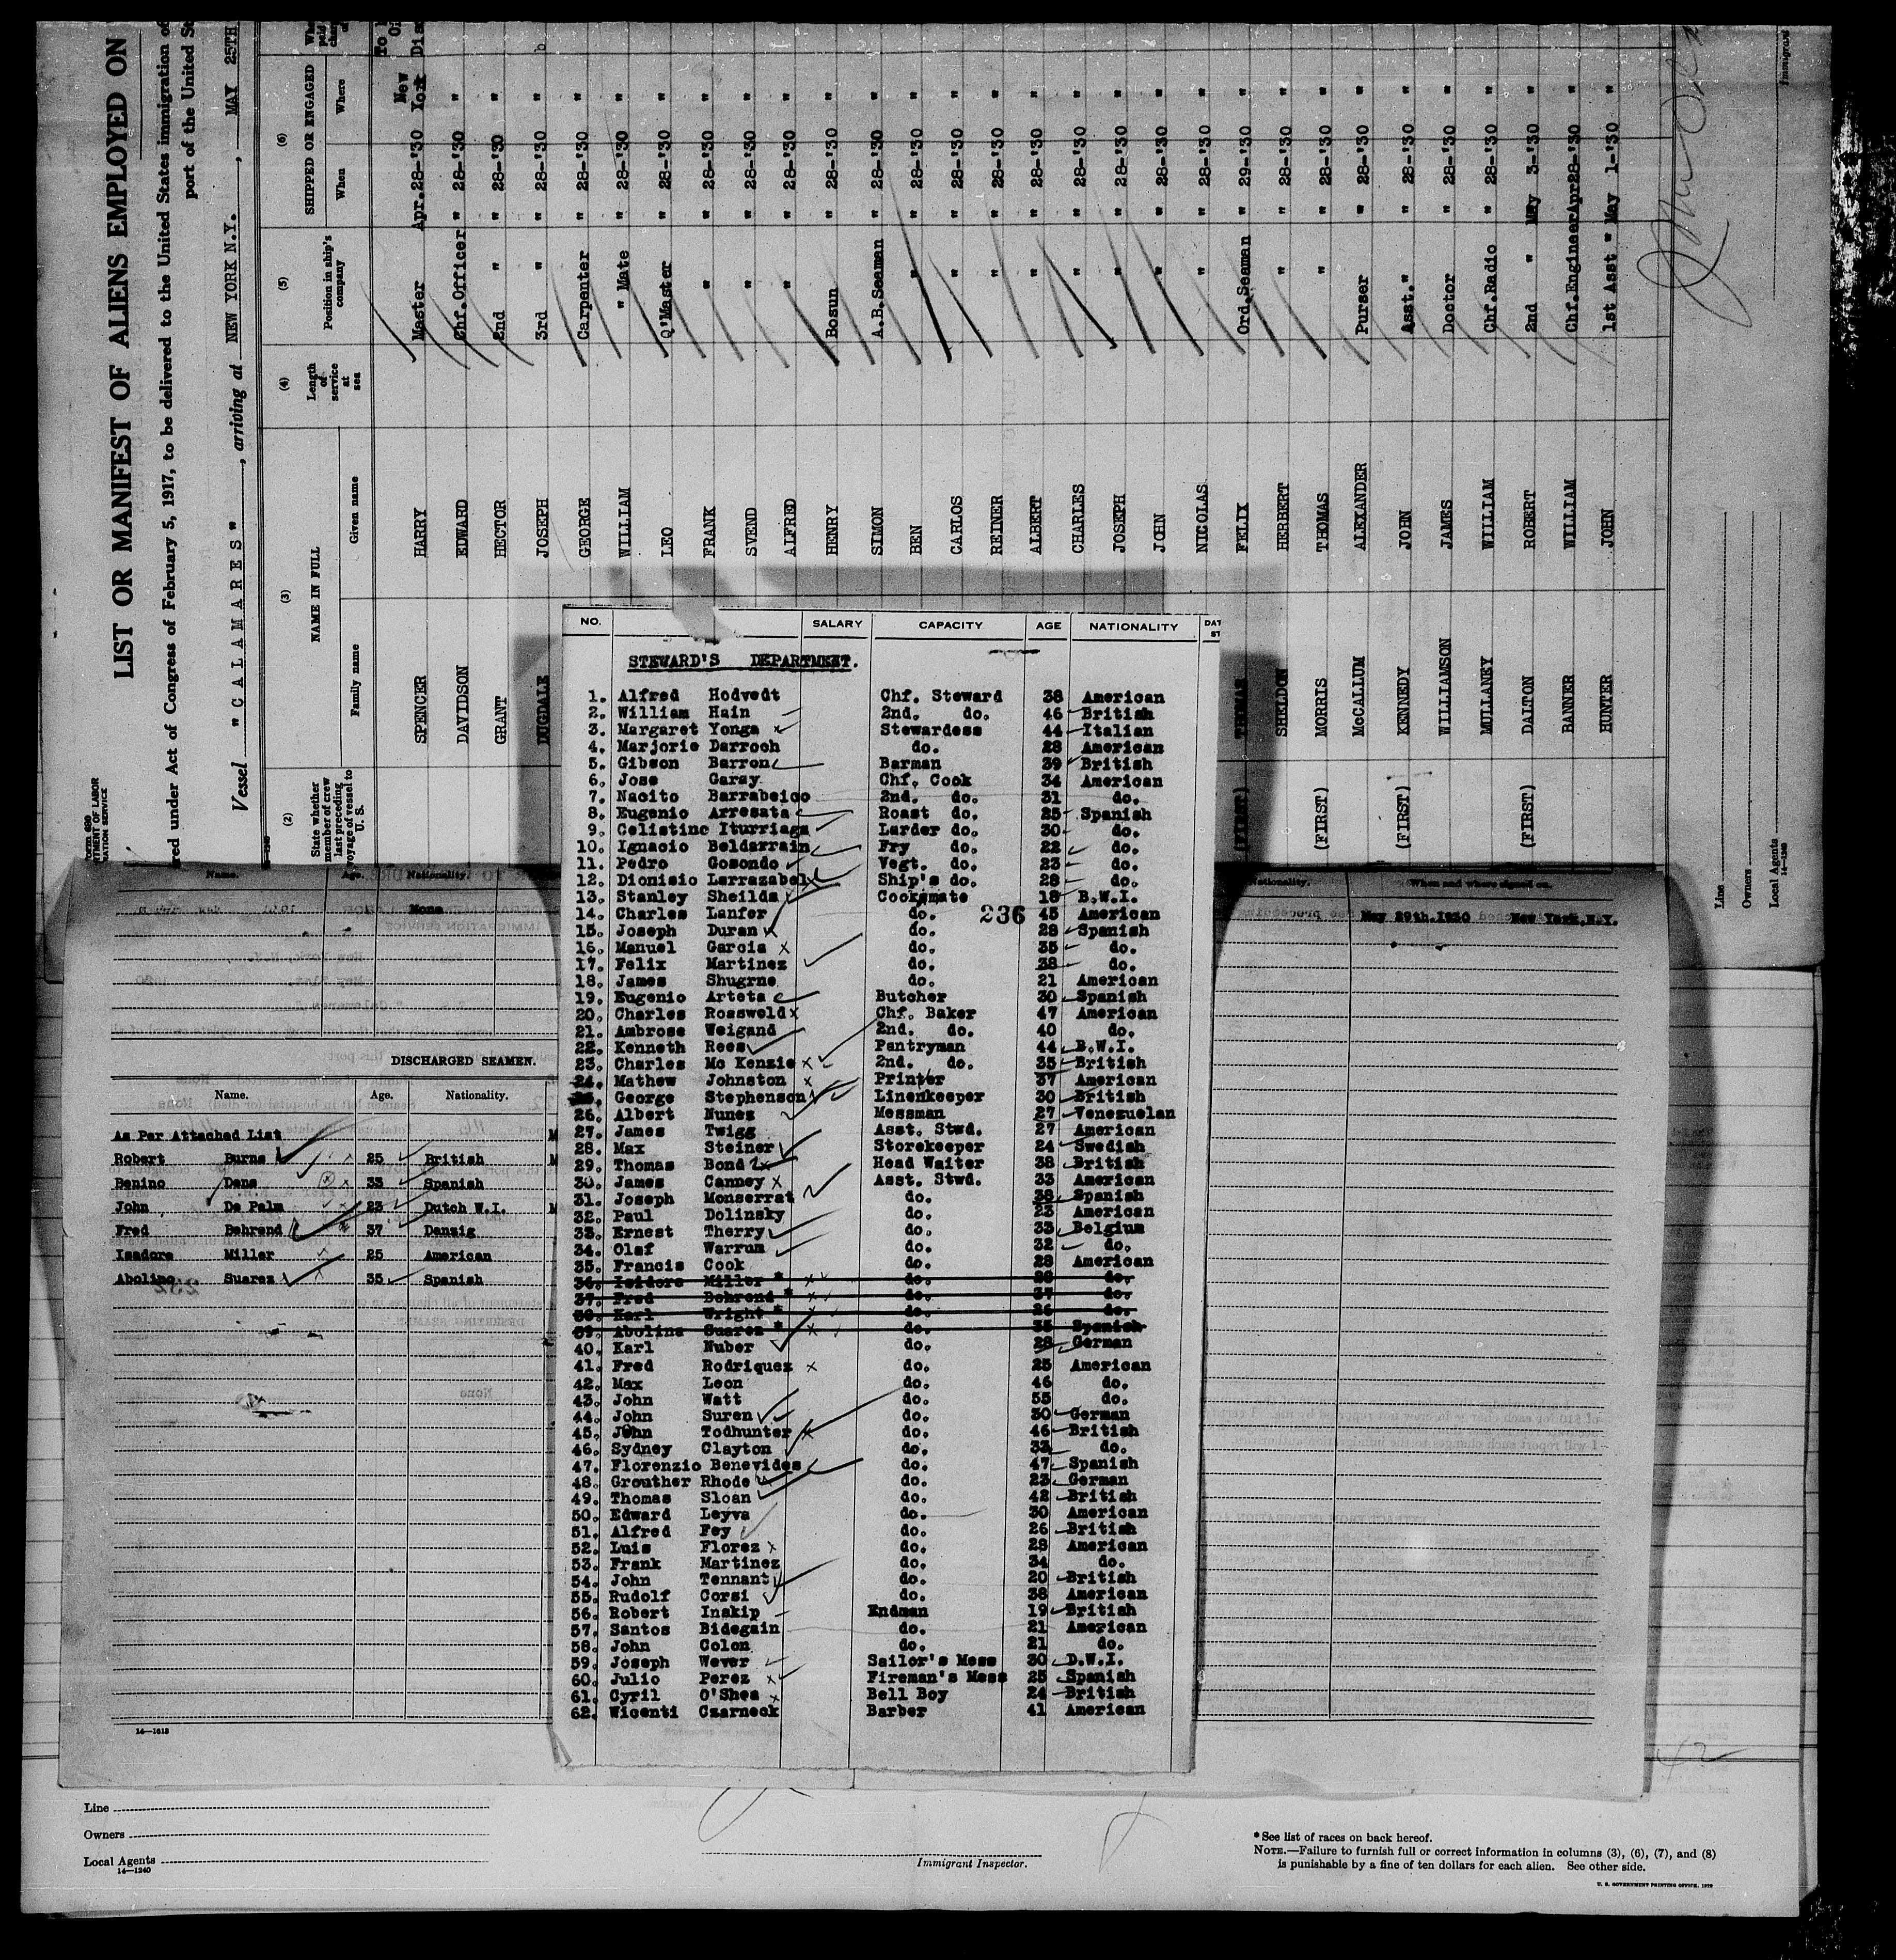 LIST OR MANIFEST OF ALIENS EMPLOYED ON
red under Act of Congress of February 5, 1917, to be delivered to the United States immigration
port of the United
Vessel "CALAMARES", arriving at NEW YORK N.Y., MAY 25TH
(2) (3) (4) (5) (6)
State whether member of crew last preceding voyage of vessel to U. S.
NAME IN FULL
Family name Given name
Length of service at sea
Position in ship's company
SHIPPED OR ENGAGED
When Where
SPENCER HARRY Master Apr.28-'30 New York
DAVIDSON EDWARD Chf.Officer " 28-'30 "
GRANT HECTOR 2nd " " 28-'30 "
DUGDALE JOSEPH 3rd " " 28-'30 "
GEORGE Carpenter " 28-'30 "
WILLIAM " Mate " 28-'30 "
LEO Q'Master " 28-'30 "
FRANK " " 28-'30 "
SVEND " " 28-'30 "
ALFRED " " 28-'30 "
HENRY Bosun " 28-'30 "
SIMON A.B.Seaman " 28-'30 "
BEN " " 28-'30 "
CARLOS " " 28-'30 "
REINER " " 28-'30 "
ALBERT " " 28-'30 "
CHARLES " " 28-'30 "
JOSEPH " " 28-'30 "
JOHN " " 28-'30 "
NICOLAS " " 28-'30 "
(FIRST) THOMAS FELIX Ord.Seaman " 29-'30 "
SHELDON HERBERT " " 28-'30 "
(FIRST) MORRIS THOMAS " " 28-'30 "
McCALLUM ALEXANDER Purser " 28-'30 "
(FIRST) KENNEDY JOHN Asst." " 28-'30 "
WILLIAMSON JAMES Doctor " 28-'30 "
MULLANEY WILLIAM Chf.Radio " 28-'30 "
(FIRST) DALTON ROBERT 2nd " May 3-'30 "
BANNER WILLIAM Chf.Engineer Apr28-'30 "
HUNTER JOHN 1st Asst " May 1-'30 "
Line
Owners
Local Agents
14-1240
NO. SALARY CAPACITY AGE NATIONALITY
STEWARD'S DEPARTMENT.
1. Alfred Hodvedt Chf. Steward 38 American
2. William Hain 2nd. do. 46 British
3. Margaret Yonga Stewardess 44 Italian
4. Marjorie Darroch do. 28 American
5. Gibson Barron Barman 39 British
6. Jose Garay Chf. Cook 34 American
7. Nacito Barrabeico 2nd. do. 31 do.
8. Eugenio Arresata Roast do. 25 Spanish
9. Celistino Iturriaga Larder do. 30 do.
10. Ignacio Beldarrain Fry do. 22 do.
11. Pedro Gosondo Vegt. do. 23 do.
12. Dionisio Larrazabel Ship's do. 28 do.
13. Stanley Sheilds Cooksmate 18 B.W.I.
14. Charles Lanfer do. 45 American
236
15. Joseph Duran do. 28 Spanish
16. Manuel Garcia do. 35 do.
17. Felix Martinez do. 38 do.
18. James Shugrne do. 21 American
19. Eugenio Arteta Butcher 30 Spanish
20. Charles Rossweld Chf. Baker 47 American
21. Ambrose Weigand 2nd. do. 40 do.
22. Kenneth Rees Pantryman 44 B.W.I.
23. Charles Mc Kenzie 2nd. do. 35 British
24. Mathew Johnston Printer 37 American
George Stephenson Linenkeeper 30 British
26. Albert Nunez Messman 27 Venezuelan
27. James Twigg Asst. Stwd. 27 American
28. Max Steiner Storekeeper 24 Swedish
29. Thomas Bond Head Waiter 38 British
30. James Canney Asst. Stwd. 33 American
31. Joseph Monserrat do. 38 Spanish
32. Paul Dolinsky do. 23 American
33. Ernest Therry do. 33 Belgium
34. Olaf Warrum do. 32 do.
35. Francis Cook do. 28 American
36. Isidore Miller * do. 26 do.
37. Fred Behrend * do. 37 do.
38. Karl Wright * do. 26 do.
39. Abolina Suarez * do. 35 Spanish
40. Karl Nuber do. 28 German
41. Fred Rodriquez do. 25 American
42. Max Leon do. 46 do.
43. John Watt do. 55 do.
44. John Suren do. 30 German
45. John Todhunter do. 46 British
46. Sydney Clayton do. 33 do.
47. Florenzio Benevides do. 47 Spanish
48. Grouther Rhode do. 23 German
49. Thomas Sloan do. 42 British
50. Edward Leyva do. 30 American
51. Alfred Fey do. 26 British
52. Luis Florez do. 28 American
53. Frank Martinez do. 34 do.
54. John Tennant do. 20 British
55. Rudolf Corsi do. 38 American
56. Robert Inskip Endman 19 British
57. Santos Bidegain do. 21 American
58. John Colon do. 21 do.
59. Joseph Wever Sailor's Mess 30 D.W.I.
60. Julio Perez Fireman's Mess 25 Spanish
61. Cyril O'Shea Bell Boy 24 British
62. Wicenti Czarneck Barber 41 American
Name. Age. Nationality.
None
DISCHARGED SEAMEN.
Name. Age. Nationality.
As Per Attached List
Robert Burns 25 British
Benino Dens 33 Spanish
John De Palm 23 Dutch W.I.
Fred Behrend 37 Danzig
Isadore Miller 25 American
Abolino Suarez 35 Spanish
14-1613
Nationality. When and where signed on.
May 29th.1930 New York,N.Y.
42
Line
Owners
Local Agents
14-1240
Immigrant Inspector.
* See list of races on back hereof.
NOTE.—Failure to furnish full or correct information in columns (3), (6), (7), and (8)
is punishable by a fine of ten dollars for each alien. See other side.
U. S. GOVERNMENT PRINTING OFFICE